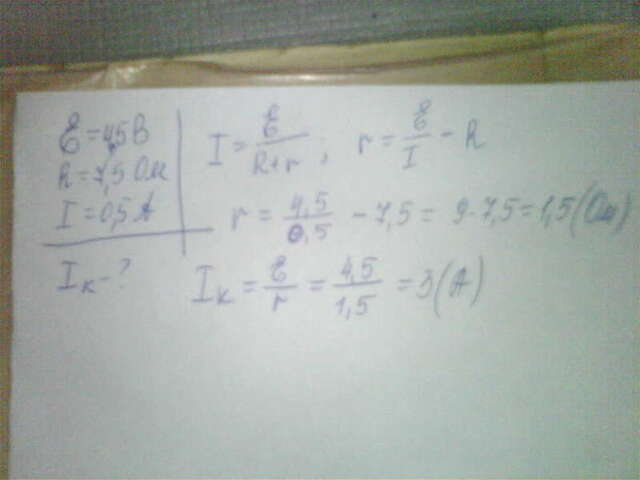 ℰ = 4,5 В
R = 7,5 Ом
I = 0,5 А
Iк - ?
I = ℰ / (R + r) ; r = ℰ / I - R
r = 4,5 / 0,5 - 7,5 = 9 - 7,5 = 1,5 (Ом)
Iк = ℰ / r = 4,5 / 1,5 = 3 (А)